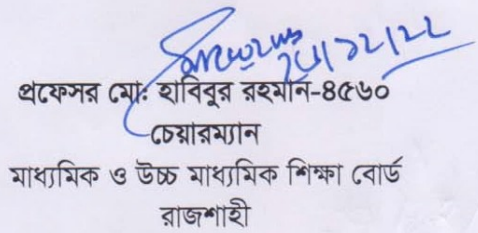 ২১/১২/২২
প্রফেসর মো: হাবিবুর রহমান-৪৫৬০
চেয়ারম্যান
মাধ্যমিক ও উচ্চ মাধ্যমিক শিক্ষা বোর্ড
রাজশাহী